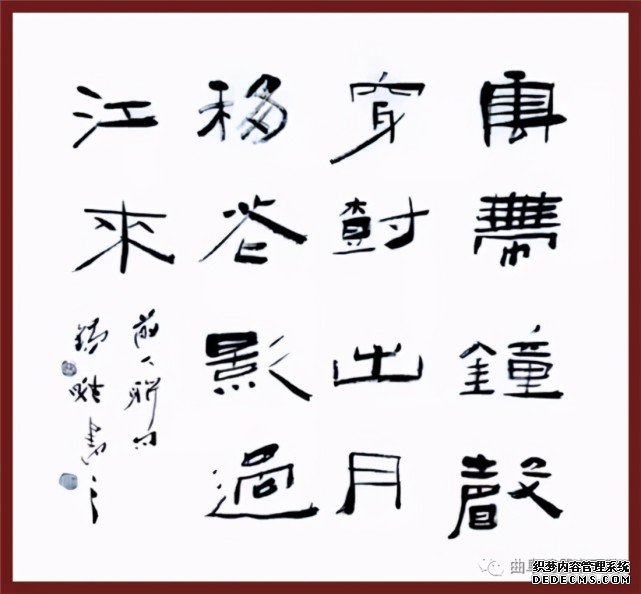 雲帶鐘聲
穿樹出月
移花影過
江來
织梦内容管理系统
DEDECMS.COM